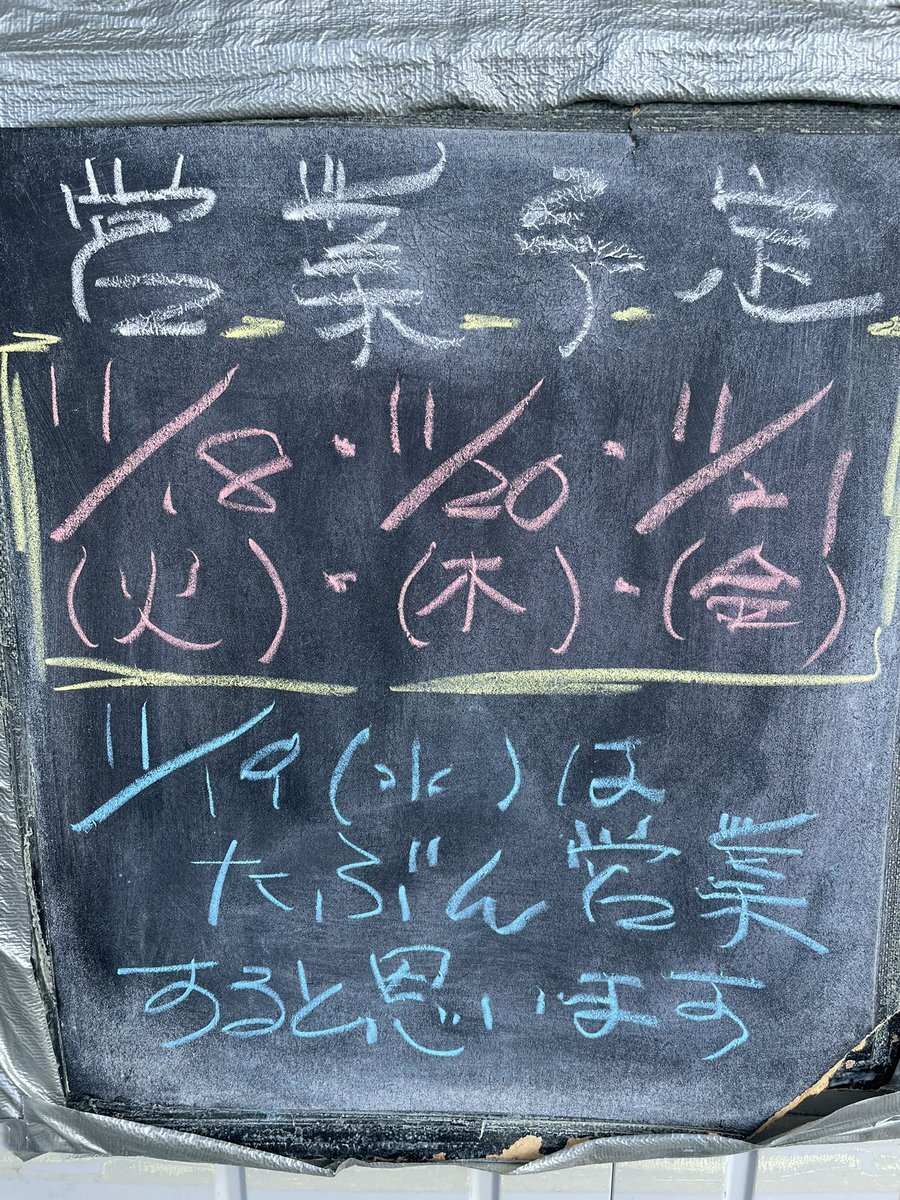 営業予定
11/18・11/20・11/21
(火)・(木)・(金)
11/19(水)は
たぶん営業
すると思います